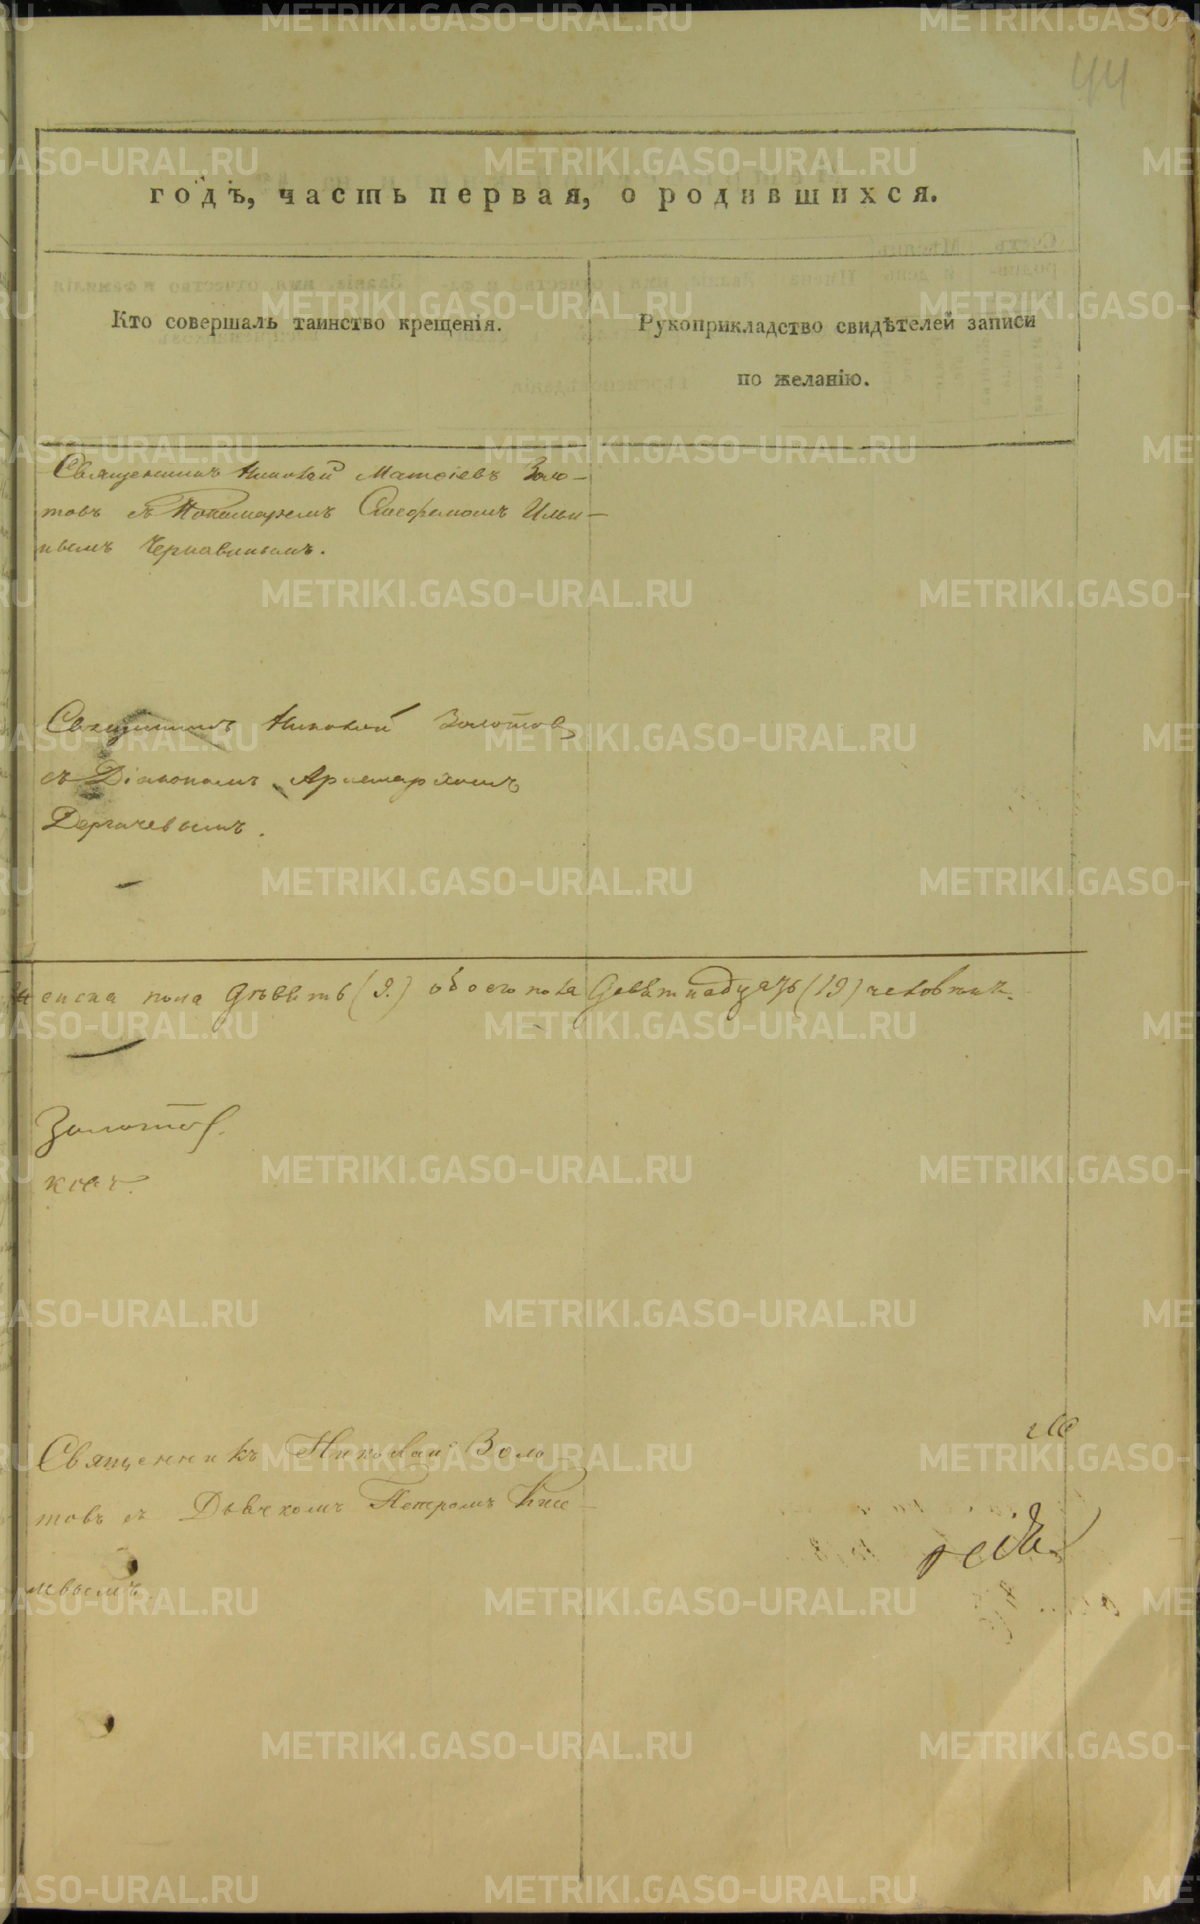 44
годъ, часть первая, о родившихся.
Кто совершалъ таинство крещенія.
Рукоприкладство свидѣтелей записи
по желанію.
Священникъ Николай Матѳіевъ Золо-
товъ съ Пономаремъ Стефаномъ Ильи-
нымъ Чернавинымъ.
Священникъ Николай Золотовъ
съ Діакономъ Аристархомъ
Дергачевымъ.
женска пола дѣвять (9.) обоего пола девятнадцать (19) человѣкъ.
Золотов.
ковъ.
Священникъ Николай Золо
товъ съ Дьячкомъ Петромъ
METRIKI.GASO-URAL.RU